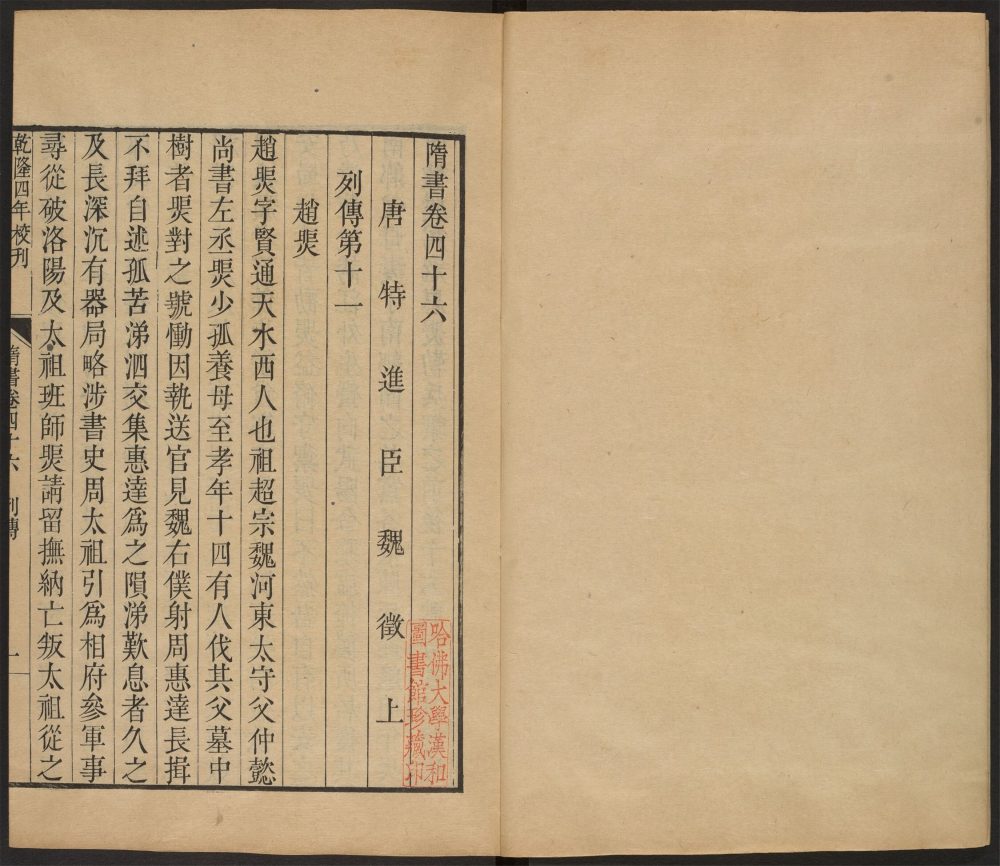 隋書卷四十六
唐特進臣魏徵上
列傳第十一
趙煚
趙煚字賢通天水西人也祖超宗魏河東太守父仲懿
尚書左丞煚少孤養母至孝年十四有人伐其父墓中
樹者煚對之號慟因執送官見魏右僕射周惠達長揖
不拜自述孤苦涕泗交集惠達爲之隕涕歎息者久之
及長深沉有器局略涉書史周太祖引爲相府參軍事
尋從破洛陽及太祖班師煚請留撫納亡叛太祖從之
乾隆四年校刊
隋書卷四十六 列傳
一
哈佛大學漢和
圖書館珍藏印